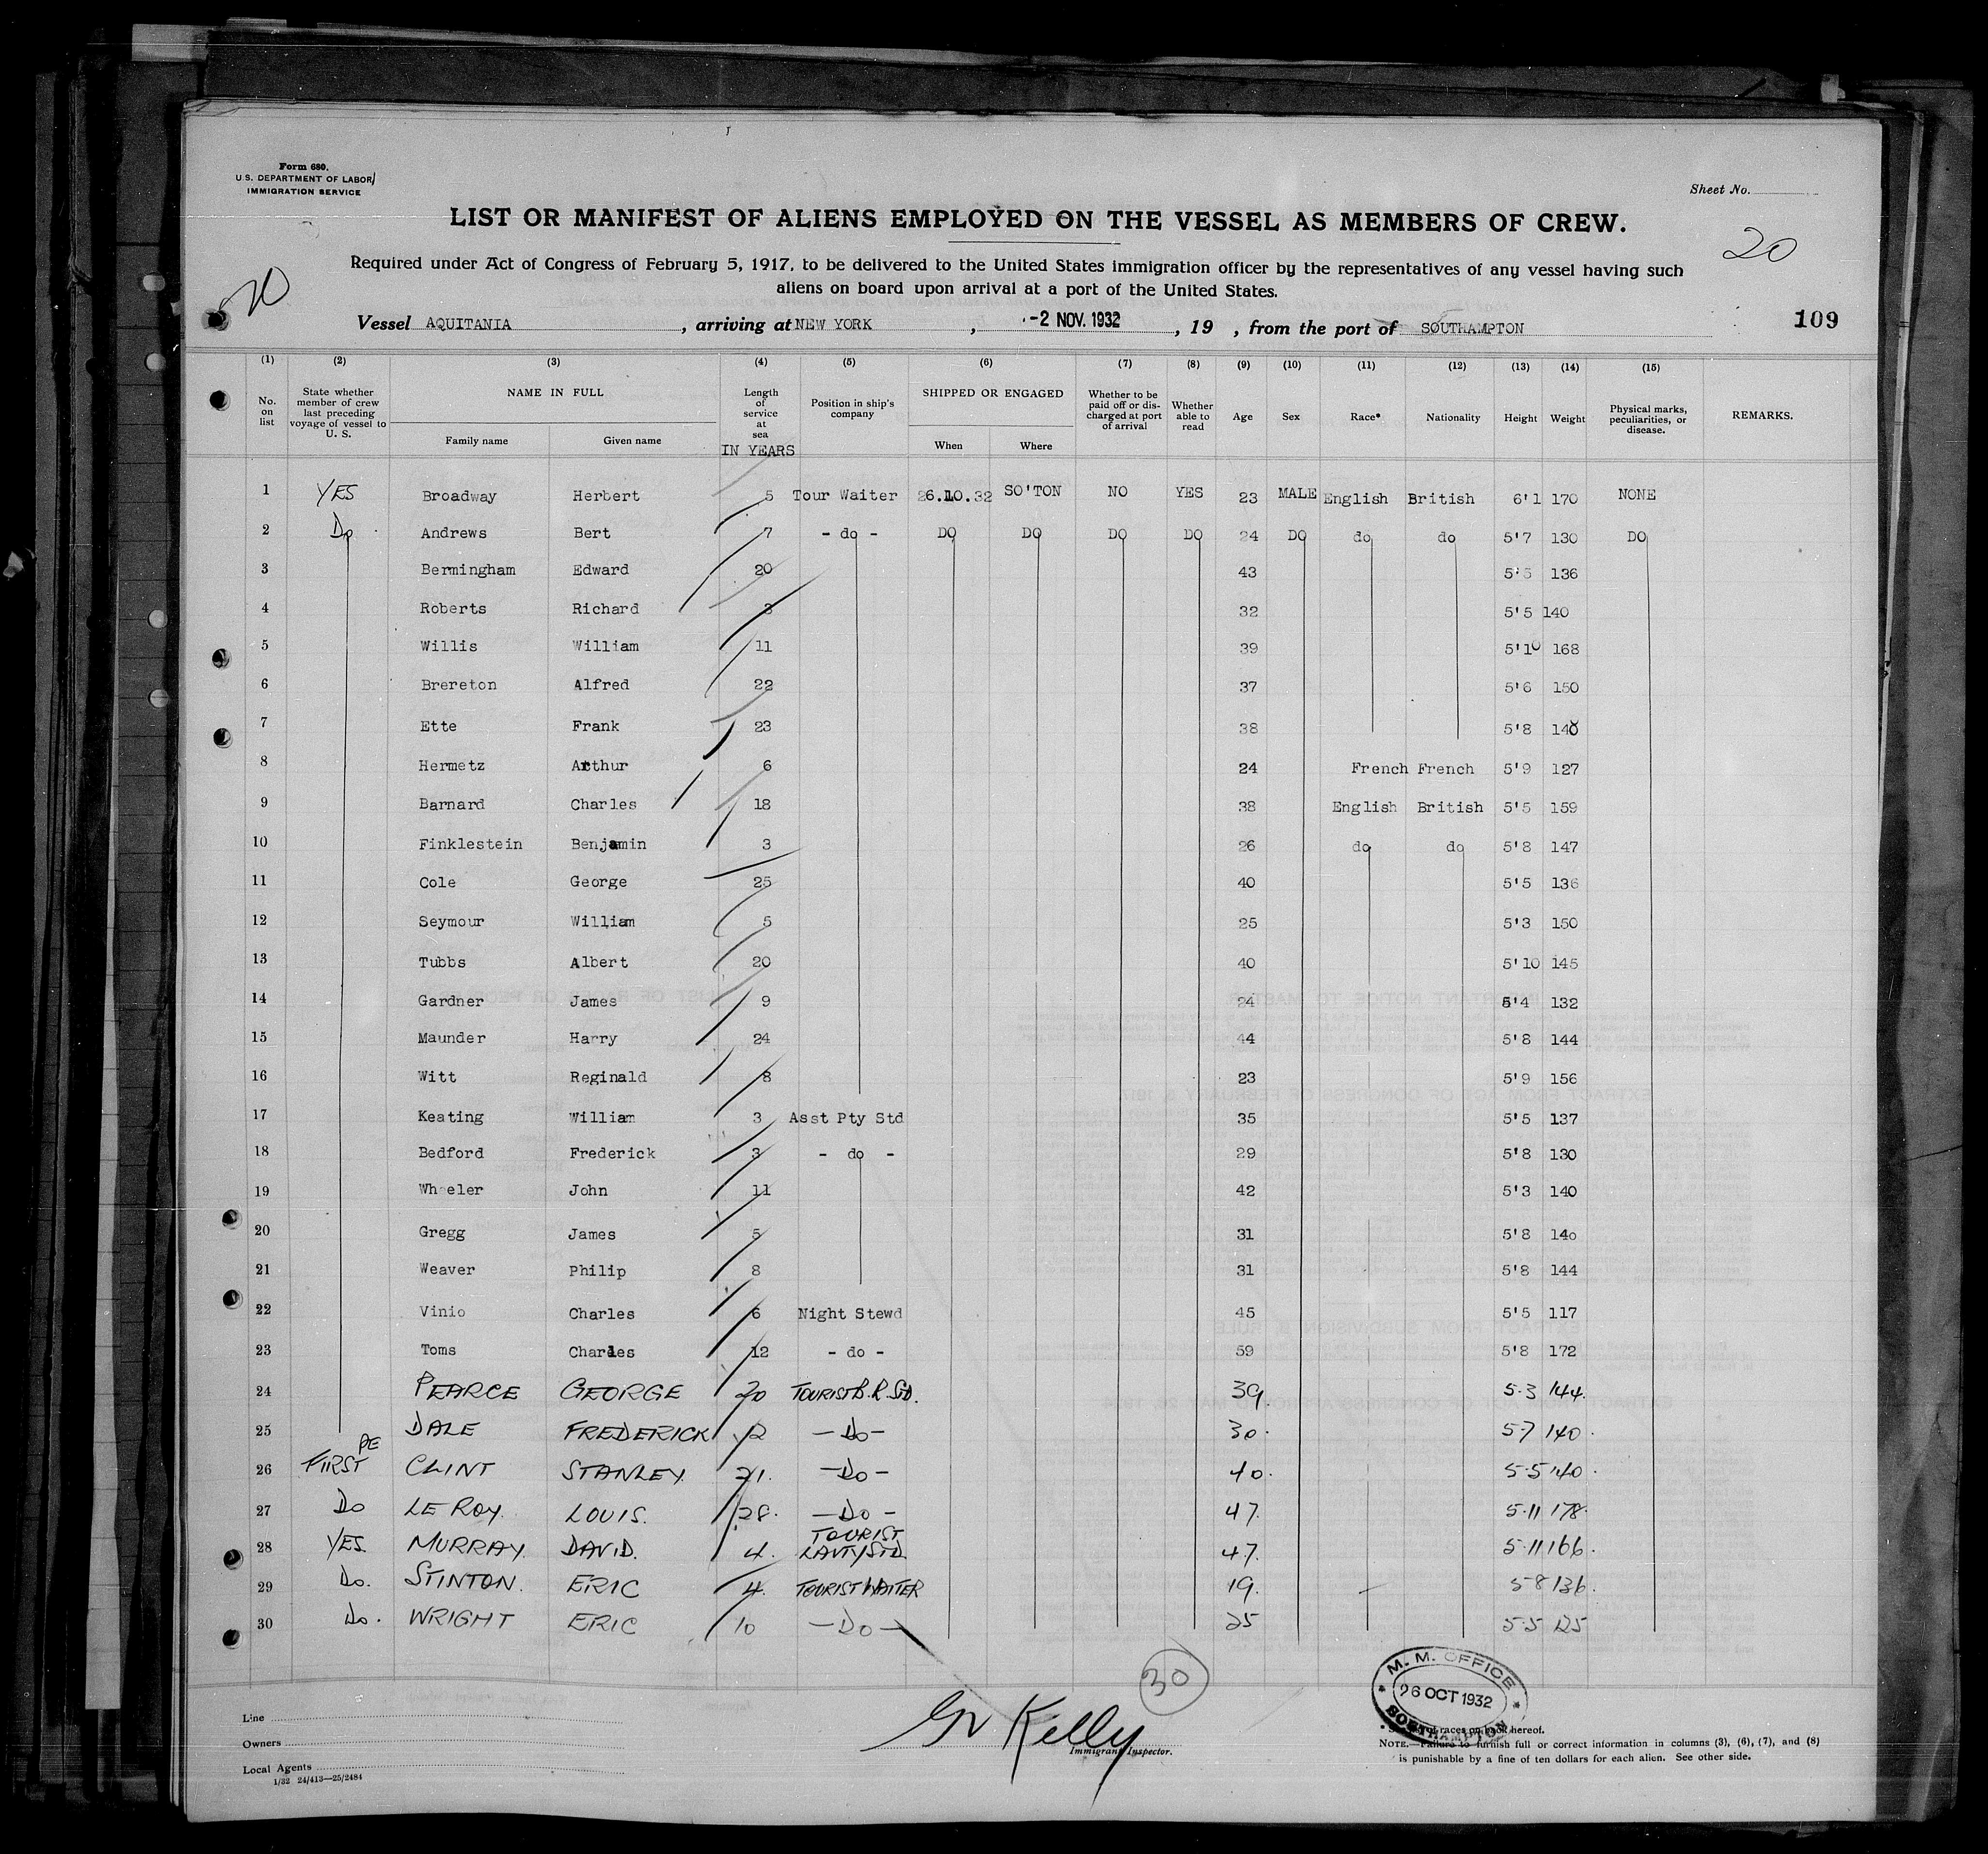 Form 680.
U.S. DEPARTMENT OF LABOR
IMMIGRATION SERVICE
Sheet No.
LIST OR MANIFEST OF ALIENS EMPLOYED ON THE VESSEL AS MEMBERS OF CREW.
20
Required under Act of Congress of February 5, 1917, to be delivered to the United States immigration officer by the representatives of any vessel having such
aliens on board upon arrival at a port of the United States.
Vessel AQUITANIA, arriving at NEW YORK, -2 NOV. 1932, 19 , from the port of SOUTHAMPTON
109
(1) (2) (3) (4) (5) (6) (7) (8) (9) (10) (11) (12) (13) (14) (15)
No. on list
State whether member of crew last preceding voyage of vessel to U. S.
NAME IN FULL
Family name Given name
Length of service at sea IN YEARS
Position in ship's company
SHIPPED OR ENGAGED
When Where
Whether to be paid off or discharged at port of arrival
Whether able to read
Age Sex Race* Nationality Height Weight
Physical marks, peculiarities, or disease.
REMARKS.
1 YES Broadway Herbert 5 Tour Waiter 26.10.32 SO'TON NO YES 23 MALE English British 6'1 170 NONE
2 Do Andrews Bert 7 - do - DO DO DO DO 24 DO do do 5'7 130 DO
3 Bermingham Edward 20 43 5'5 136
4 Roberts Richard 3 32 5'5 140
5 Willis William 11 39 5'10 168
6 Brereton Alfred 22 37 5'6 150
7 Ette Frank 23 38 5'8 148
8 Hermetz Arthur 6 24 French French 5'9 127
9 Barnard Charles 18 38 English British 5'5 159
10 Finklestein Benjamin 3 26 do do 5'8 147
11 Cole George 25 40 5'5 136
12 Seymour William 5 25 5'3 150
13 Tubbs Albert 20 40 5'10 145
14 Gardner James 9 24 5'4 132
15 Maunder Harry 24 44 5'8 144
16 Witt Reginald 8 23 5'9 156
17 Keating William 3 Asst Pty Std 35 5'5 137
18 Bedford Frederick 3 - do - 29 5'8 130
19 Wheeler John 11 42 5'3 140
20 Gregg James 5 31 5'8 140
21 Weaver Philip 8 31 5'8 144
22 Vinio Charles 6 Night Stewd 45 5'5 117
23 Toms Charles 12 - do - 59 5'8 172
24 PEARCE GEORGE 20 TOURIST B.R. STD. 39 5.3 144.
25 DALE FREDERICK 12 -Do- 30. 5.7 140.
26 FIRST CLINT STANLEY 21. -Do- 40. 5.5 140.
27 Do LE ROY LOUIS. 28. -Do- 47. 5.11 178.
28 YES MURRAY DAVID. 4. TOURIST LAVTY STD. 47. 5.11 166.
29 Do. STINTON. ERIC 4. TOURIST WAITER 19. 5-8 136.
30 Do. WRIGHT ERIC 10 -Do- 25 5.5 125
30
M. M. OFFICE
26 OCT 1932
SOUTHAMPTON
Line
Owners
Local Agents
1/32 24/413—25/2484
Kelly
Immigrant Inspector.
* of races on back hereof.
NOTE.—Failure to furnish full or correct information in columns (3), (6), (7), and (8)
is punishable by a fine of ten dollars for each alien. See other side.